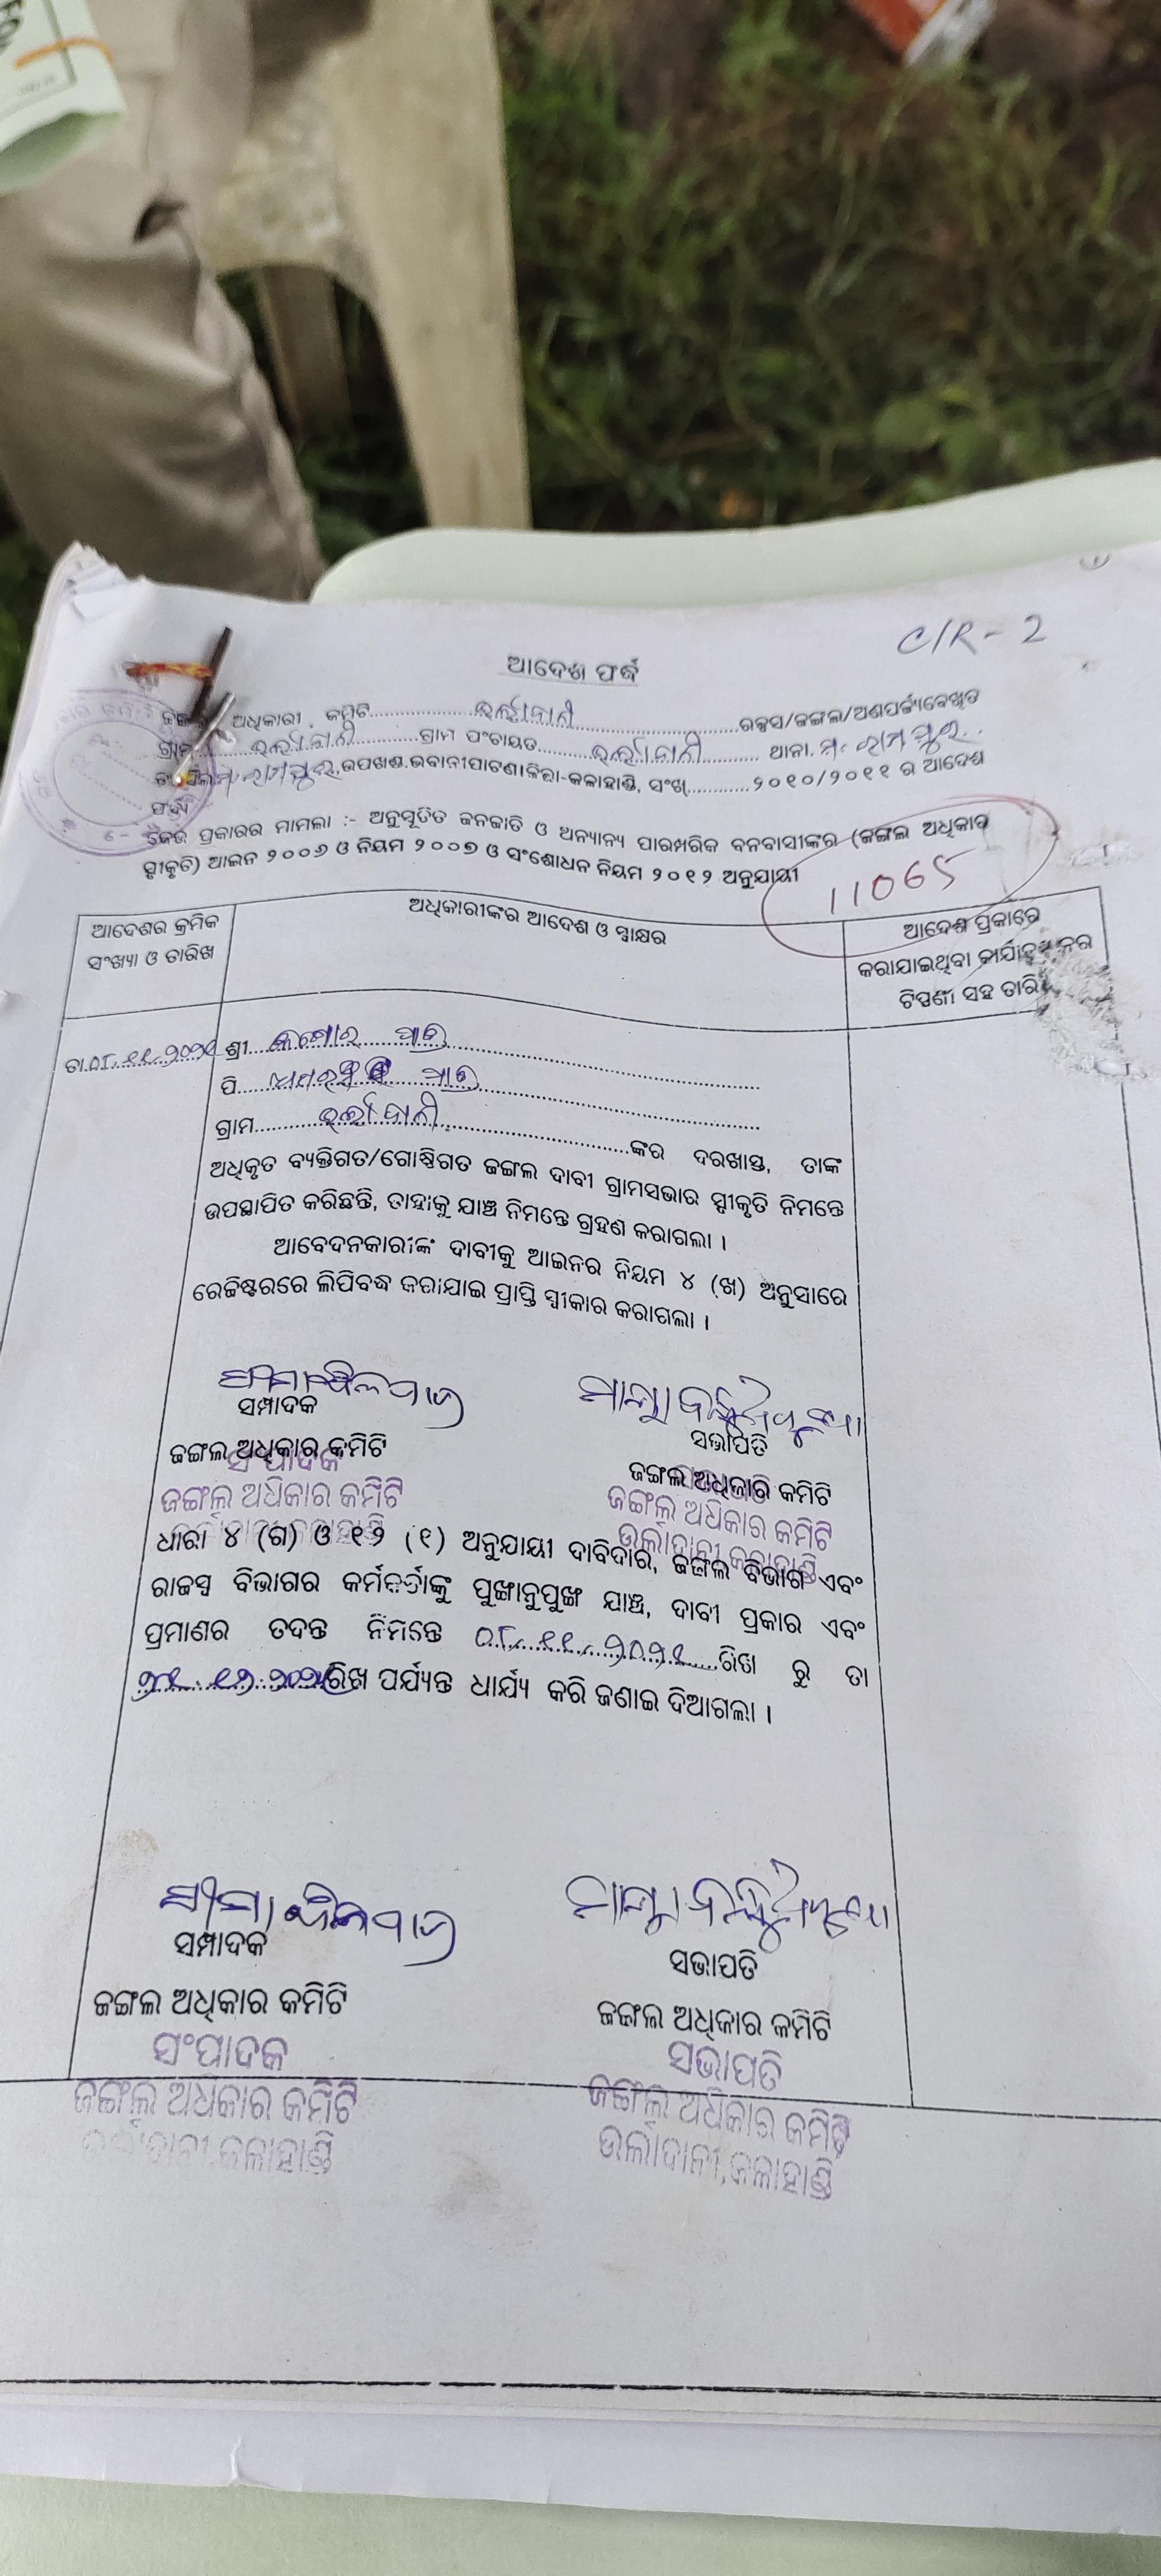 C/R - 2
ଆଦେଶ ଫର୍ଦ୍ଦ
ଅଧିକାରୀ . କମିଟି....................ଉର୍ଲାଦାନୀ..............................ରକ୍ସସ/ଜଙ୍ଗଲ/ଅଣପର୍ଯ୍ୟାବେଷିତ
ଗ୍ରାମ......ଉର୍ଲାଦାନୀ............ଗ୍ରାମ ପଂଚାୟତ..........ଉର୍ଲାଦାନୀ............ ଥାନା. ମ. ରାମପୁର..
ମ. ରାମପୁର,ଉପଖଣ୍ଡ.ଭବାନୀପାଟଣା ଜିଲା-କଳାହାଣ୍ଡି, ସଂଖ୍ୟ............୨୦୧୦/୨୦୧୧ ର ଆଦେଶ
ଫର୍ଦ୍ଦ
କେଉଁ ପ୍ରକାରର ମାମଲା :- ଅନୁସୂଚିତ ଜନଜାତି ଓ ଅନ୍ୟାନ୍ୟ ପାରମ୍ପରିକ ବନବାସୀଙ୍କର (ଜଙ୍ଗଲ ଅଧିକାର
ସ୍ୱୀକୃତି) ଆଇନ ୨୦୦୬ ଓ ନିୟମ ୨୦୦୭ ଓ ସଂଶୋଧନ ନିୟମ ୨୦୧୨ ଅନୁଯାୟୀ
11065
ଆଦେଶର କ୍ରମିକ
ସଂଖ୍ୟା ଓ ତାରିଖ
ଅଧିକାରୀଙ୍କର ଆଦେଶ ଓ ସ୍ୱାକ୍ଷର
ଆଦେଶ ପ୍ରକାରେ
କରାଯାଇଥିବା
ଟିପ୍ପଣୀ ସହ
ତା
ଶ୍ରୀ.... କିଶୋର ମାଝି
ପି....... ମାଝି
ଗ୍ରାମ..........ଉର୍ଲାଦାନୀ..............................ଙ୍କର ଦରଖାସ୍ତ, ତାଙ୍କ
ଅଧିକୃତ ବ୍ୟକ୍ତିଗତ/ଗୋଷ୍ଠିଗତ ଜଙ୍ଗଲ ଦାବୀ ଗ୍ରାମସଭାର ସ୍ୱୀକୃତି ନିମନ୍ତେ
ଉପସ୍ଥାପିତ କରିଛନ୍ତି, ତାହାକୁ ଯାଞ୍ଚ ନିମନ୍ତେ ଗ୍ରହଣ କରାଗଲା ।
ଆବେଦନକାରୀଙ୍କ ଦାବୀକୁ ଆଇନର ନିୟମ ୪ (ଖ) ଅନୁସାରେ
ରେଜିଷ୍ଟରରେ ଲିପିବଦ୍ଧ କରାଯାଇ ପ୍ରାପ୍ତି ସ୍ୱୀକାର କରାଗଲା ।
ସମ୍ପାଦକ
ଜଙ୍ଗଲ ଅଧିକାର କମିଟି
ସଂପାଦକ
ଜଙ୍ଗଲ ଅଧିକାର କମିଟି
ସଭାପତି
ଜଙ୍ଗଲ ଅଧିକାରି କମିଟି
ଜଙ୍ଗଲ ଅଧିକାର କମିଟି
ଉର୍ଲାଦାନୀ,କଳାହାଣ୍ଡି
ଧାରା ୪ (ଗ) ଓ ୧୨ (୧) ଅନୁଯାୟୀ ଦାବିଦାର, ଜଙ୍ଗଲ ବିଭାଗ ଏବଂ
ରାଜସ୍ୱ ବିଭାଗର କର୍ମକର୍ତ୍ତାଙ୍କୁ ପୁଙ୍ଖାନୁପୁଙ୍ଖ ଯାଞ୍ଚ, ଦାବୀ ପ୍ରକାର ଏବଂ
ପ୍ରମାଣର ତଦନ୍ତ ନିମନ୍ତେ ୦୮.୧୧.୨୦୨୧......ରିଖ ରୁ ତା
ରିଖ ପର୍ଯ୍ୟନ୍ତ ଧାର୍ଯ୍ୟ କରି ଜଣାଇ ଦିଆଗଲା ।
ସମ୍ପାଦକ
ଜଙ୍ଗଲ ଅଧିକାର କମିଟି
ସଂପାଦକ
ଜଙ୍ଗଲ ଅଧିକାର କମିଟି
ଉର୍ଲାଦାନୀ,କଳାହାଣ୍ଡି
ସଭାପତି
ଜଙ୍ଗଲ ଅଧିକାର କମିଟି
ସଭାପତି
ଜଙ୍ଗଲ ଅଧିକାର କମିଟି
ଉର୍ଲାଦାନୀ,କଳାହାଣ୍ଡି